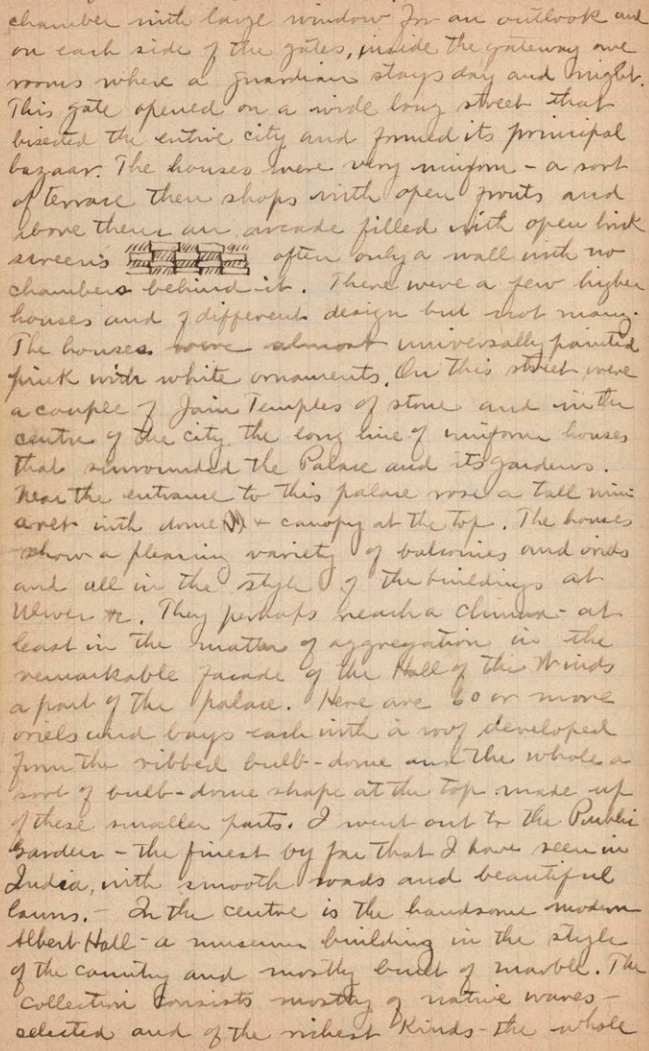 chamber with large window for an outlook and
on each side of the gates, inside the gateway are
rooms where a guardian stays day and night.
This gate opened on a wide long street that
bisected the entire city and formed its principal
bazaar. The houses were very uniform - a sort
of terrace then shops with open fronts and
above them an arcade filled with open brick
screens often only a wall with no
chambers behind it. There were a few higher
houses and of different design but not many.
The houses were almost universally painted
pink with white ornaments. On this street were
a couple of Jain Temples of stone and in the
centre of the city the long line of uniform houses
that surrounded the Palace and its gardens.
Near the entrance to this palace rose a tall min-
aret with dome + canopy at the top. The houses
show a pleasing variety of balconies and oriels
and all in the style of the buildings at
Ulwer &c. They perhaps reach a climax - at
least in the matter of aggregation in the
remarkable facade of the Hall of the Winds
a part of the palace. Here are 60 or more
oriels and bays each with a roof developed
from the ribbed bulb-dome and the whole a
sort of bulb-dome shape at the top made up
of these smaller parts. I went out to the Public
Garden - the finest by far that I have seen in
India, with smooth roads and beautiful
lawns. - In the centre is the handsome modern
Albert Hall - a museum building in the style
of the country and mostly built of marble. The
collection consists mostly of native wares -
selected and of the richest kinds - the whole